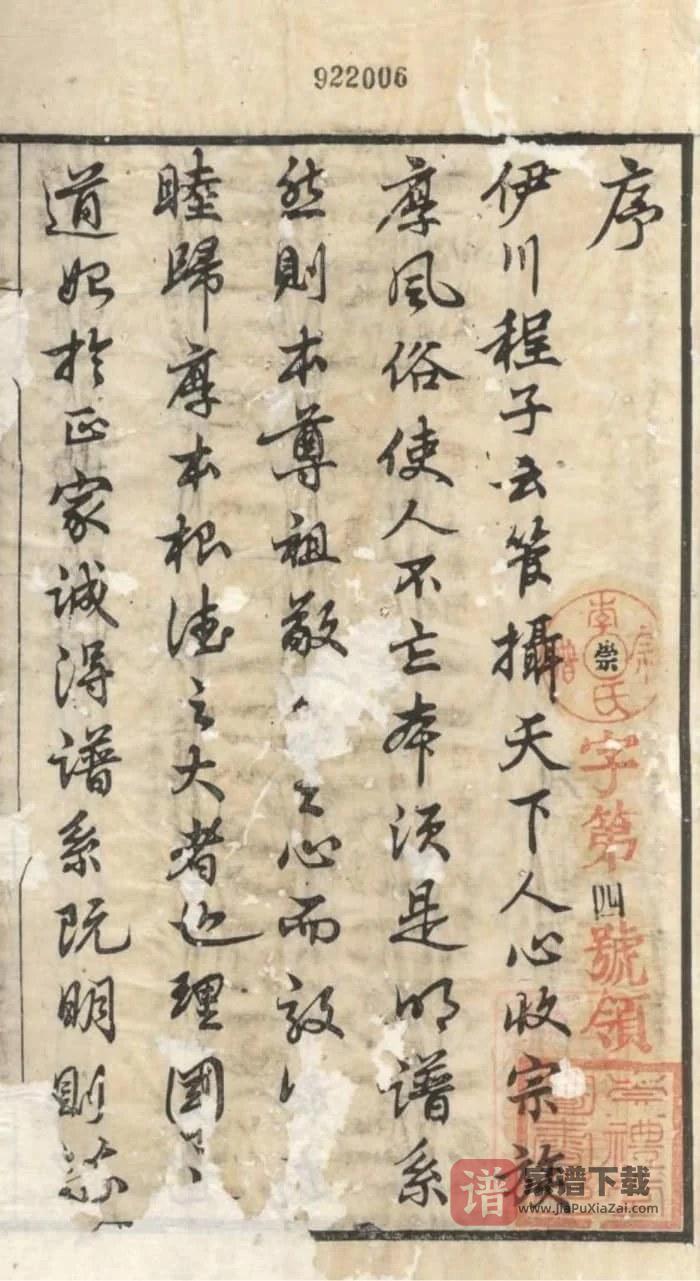 922006
序
伊川程子云管攝天下人心收宗族
厚風俗使人不忘本須是明譜系
然則本尊祖敬之心而敦
睦歸厚本根德之大者也理國之
道始於正家誠得譜系既明則
李氏宗譜
崇
字第四號領
譜
家谱下载
www.JiaPuXiaZai.com